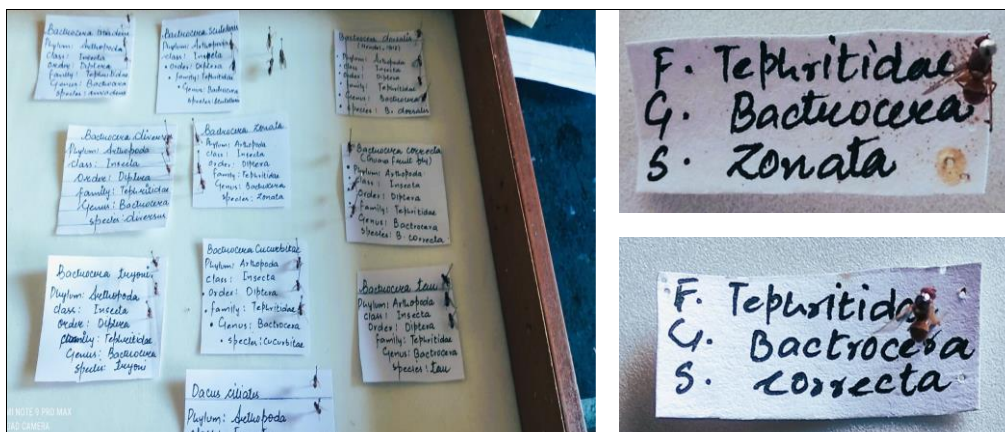 Bactrocera
Phylum: Arthropoda
class: Insecta
order: Diptera
Family: Tephritidae
Genus: Bactrocera
species:
Bactrocera scutellaris
Phylum: Arthopoda
class: Insecta
order: Diptera
family: Tephritidae
Genus: Bactrocera
species: scutellaris
Bactrocera dorsalis
Phylum: Arthopoda
class: Insecta
Order: Diptera
family: Tephritidae
Genus: Bactrocera
species: B. dorsalis
Bactrocera diversus
Phylum: Arthopoda
class: Insecta
order: Diptera
family: Tephritidae
Genus: Bactrocera
species: diversus
Bactrocera zonata
Phylum: Arthopoda
class: Insecta
order: Diptera
family: Tephritidae
Genus: Bactrocera
species: Zonata
Bactrocera correcta
(Guava fruit fly)
Phylum: Arthopoda
class: Insecta
order: Diptera
family: Tephritidae
Genus: Bactrocera
species: B. correcta
Bactrocera tryoni
Phylum: Arthopoda
class: Insecta
order: Diptera
family: Tephritidae
Genus: Bactrocera
species: tryoni
Bactrocera Cucurbitae
Phylum: Arthopoda
class: Insecta
Order: Diptera
family: Tephritidae
Genus: Bactrocera
species: cucurbitae
Bactrocera tau
Phylum: Arthopoda
class: Insecta
Order: Diptera
family: Tephritidae
Genus: Bactrocera
species: tau
Dacus ciliates
Phylum: Arthopoda
NOTE 9 PRO MAX
CAMERA
F. Tephritidae
G. Bactrocera
S. Zonata
F. Tephritidae
G. Bactrocera
S. correcta